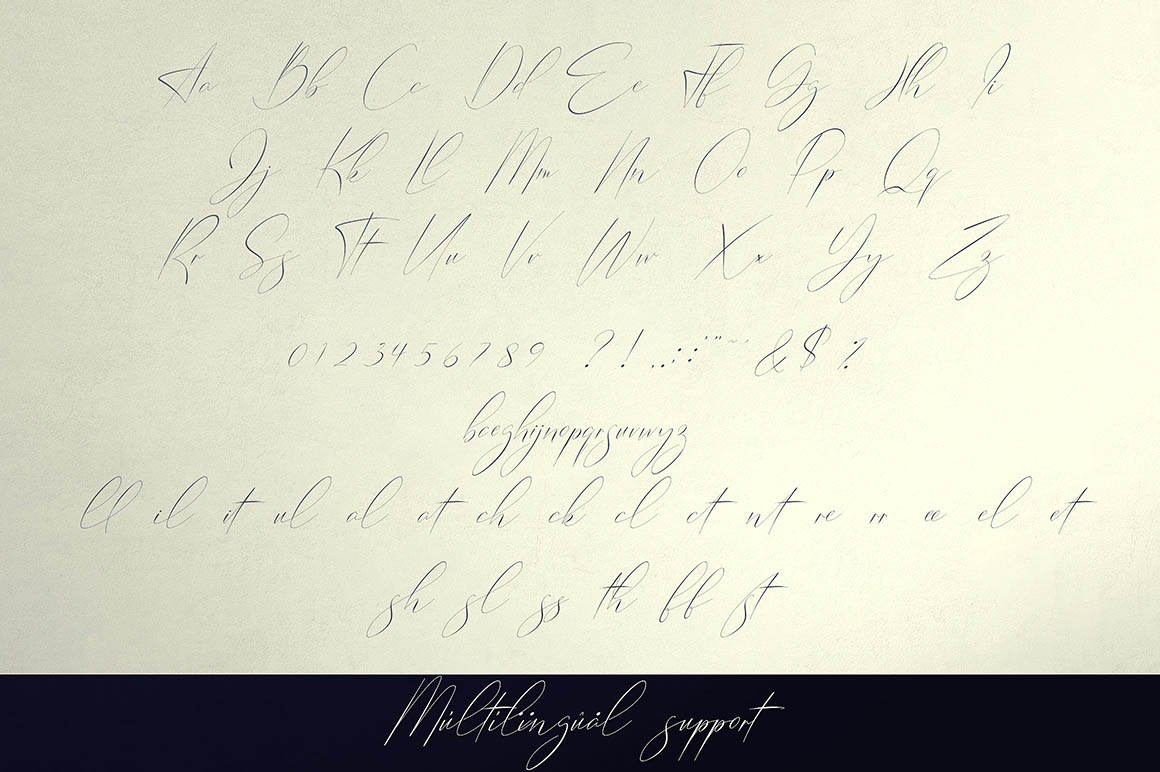 Aa Bb Cc Dd Ee Ff Gg Hh Ii
Jj Kk Ll Mm Nn Oo Pp Qq
Rr Ss Tt Uu Vv Ww Xx Yy Zz
0123456789 ? ! . , : ; ' " ~ ' & $ %
bceghijnopqrsuvwyz
ll il it ul al at ch ck cl ct nt re rr ee el et
sh sl ss th ff st
Múltilïngûàl support